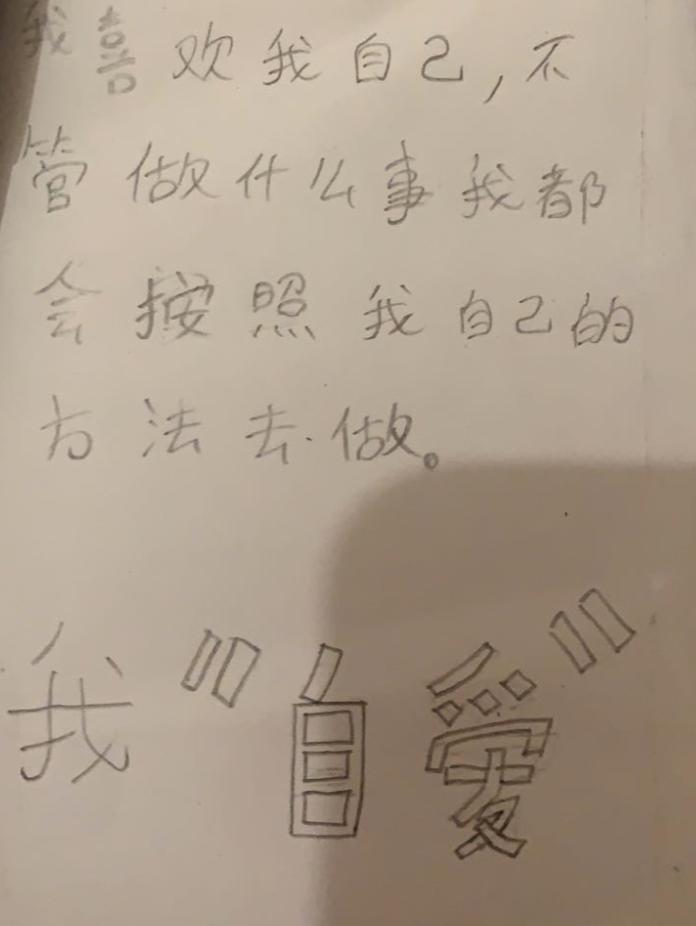 我喜欢我自己,不
管做什么事我都
会按照我自己的
方法去做。
我“自爱”